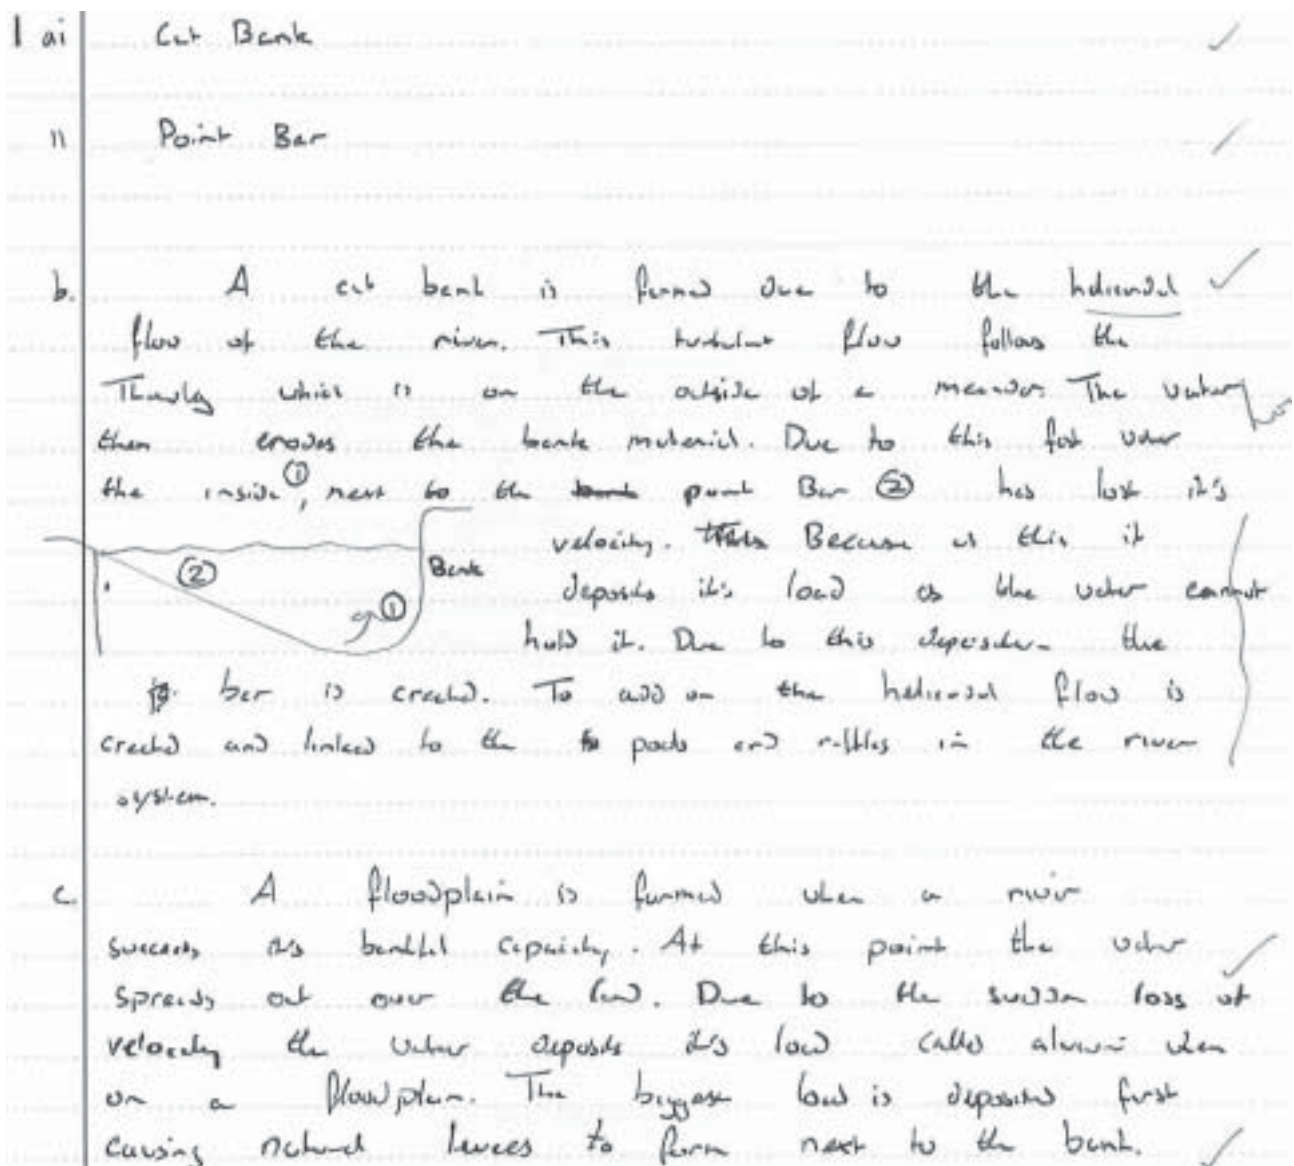 1 ai Cut Bank
ii Point Bar
b. A cut bank is formed due to the helicoidal
flow of the river. This turbulent flow follows the
which is on the outside of a meander. The water
then erodes the bank material. Due to this fast water
the inside ①, next to the bank point Bar ② has lost it's
velocity. This Because of this it
②
Bank
deposits it's load as the water cannot
①
hold it. Due to this deposition the
bar is created. To add on the helicoidal flow is
created and linked to the pools and riffles in the river
system.
c. A floodplain is formed when a river
its bankful capacity. At this point the water
spreads out over the land. Due to the sudden loss of
velocity the water deposits it's load called alluvium when
on a floodplain. The biggest load is deposited first
causing natural levees to form next to the bank.